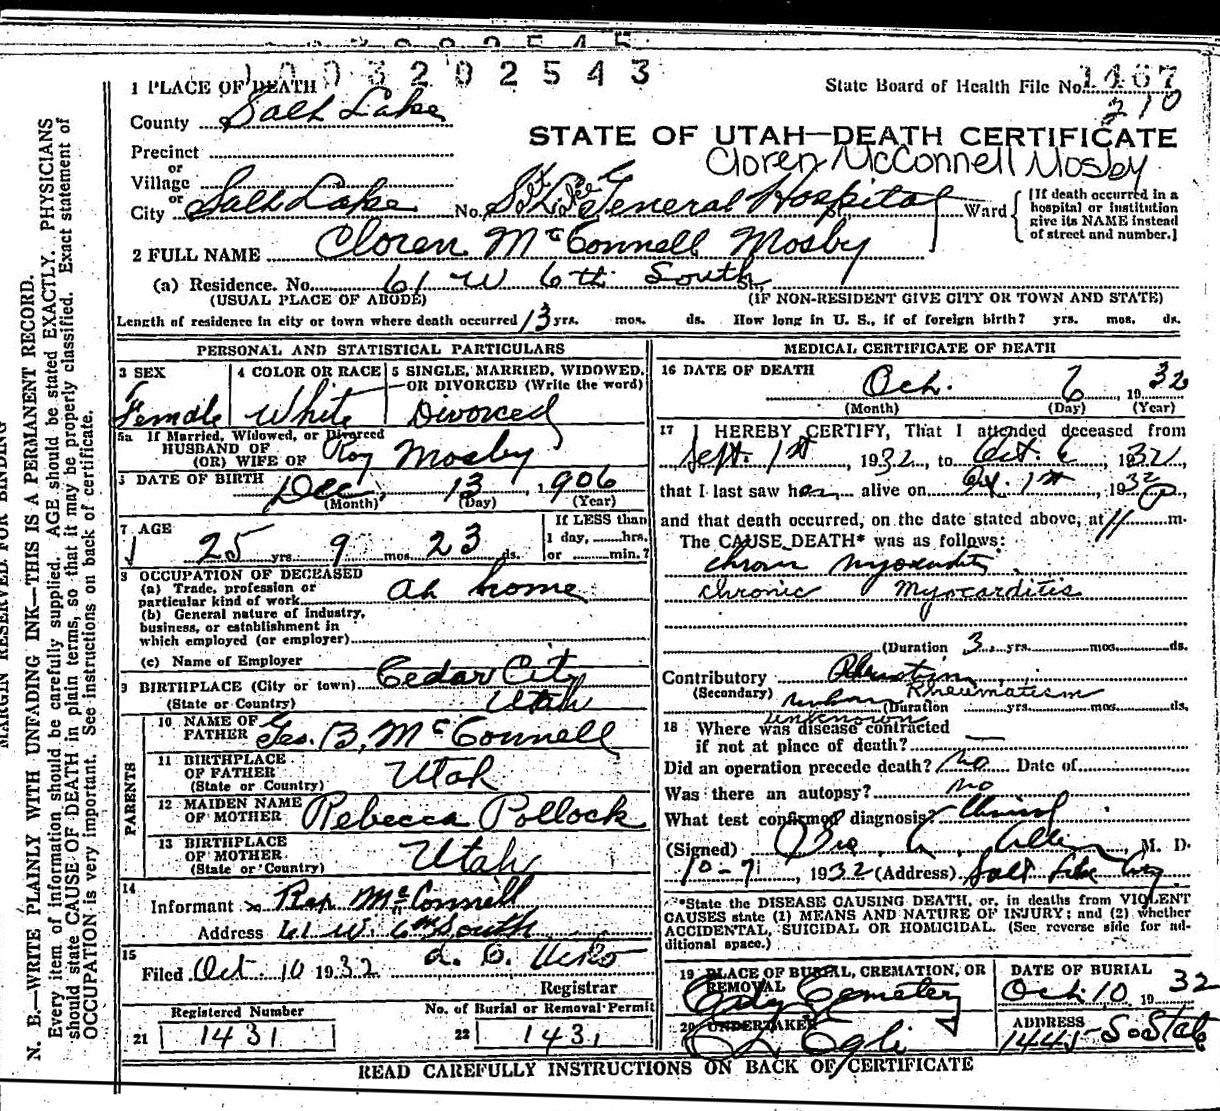 1003202543
1 PLACE OF DEATH
State Board of Health File No. 1467
210
County Salt Lake
STATE OF UTAH—DEATH CERTIFICATE
Precinct
Cloren McConnell Mosby
or
Village
City or Salt Lake No. General Hospital Ward
[If death occurred in a
hospital or institution
give its NAME instead
of street and number.]
2 FULL NAME Cloren McConnell Mosby
(a) Residence. No. 61 W 6th South
(USUAL PLACE OF ABODE) (IF NON-RESIDENT GIVE CITY OR TOWN AND STATE)
Length of residence in city or town where death occurred 13 yrs. mos. ds. How long in U. S., if of foreign birth? yrs. mos. ds.
PERSONAL AND STATISTICAL PARTICULARS
3 SEX
Female
4 COLOR OR RACE
White
5 SINGLE, MARRIED, WIDOWED,
OR DIVORCED (Write the word)
Divorced
5a If Married, Widowed, or Divorced
HUSBAND OF
(OR) WIFE OF Roy Mosby
DATE OF BIRTH Dec. 13, 1906
(Month) (Day) (Year)
7 AGE
25 yrs. 9 mos. 23 ds.
If LESS than
1 day, hrs.
or min.?
8 OCCUPATION OF DECEASED
(a) Trade, profession or
particular kind of work At home
(b) General nature of industry,
business, or establishment in
which employed (or employer)
(c) Name of Employer
9 BIRTHPLACE (City or town) Cedar City
(State or Country) Utah
PARENTS
10 NAME OF
FATHER Geo. B. McConnell
11 BIRTHPLACE
OF FATHER
(State or Country) Utah
12 MAIDEN NAME
OF MOTHER Rebecca Pollock
13 BIRTHPLACE
OF MOTHER
(State or Country) Utah
14
Informant Rex McConnell
Address 61 W. 6th South
15
Filed Oct. 10 1932
Registrar
Registered Number
21 1431
No. of Burial or Removal Permit
22 1431
MEDICAL CERTIFICATE OF DEATH
16 DATE OF DEATH
Oct. 6, 1932
(Month) (Day) (Year)
17 I HEREBY CERTIFY, That I attended deceased from
Sept. 1st, 1932, to Oct. 6, 1932,
that I last saw her alive on Oct. 1st, 1932,
and that death occurred, on the date stated above, at 11 m.
The CAUSE DEATH* was as follows:
chronic myocarditis
chronic Myocarditis
(Duration 3 yrs. mos. ds.
Contributory
(Secondary) Rheumatism
(Duration yrs. mos. ds.
unknown
18 Where was disease contracted
if not at place of death? —
Did an operation precede death? No Date of
Was there an autopsy? no
What test confirmed diagnosis? Clinical
(Signed) Geo. A. Allen, M. D.
10-7, 1932 (Address) Salt Lake City
*State the DISEASE CAUSING DEATH, or, in deaths from VIOLENT
CAUSES state (1) MEANS AND NATURE OF INJURY; and (2) whether
ACCIDENTAL, SUICIDAL OR HOMICIDAL. (See reverse side for ad-
ditional space.)
19 PLACE OF BURIAL, CREMATION, OR
REMOVAL
City Cemetery
DATE OF BURIAL
Oct. 10, 1932
20 UNDERTAKER
Egli
ADDRESS
1445 So State
READ CAREFULLY INSTRUCTIONS ON BACK OF CERTIFICATE
MARGIN RESERVED FOR BINDING
N. B.—WRITE PLAINLY WITH UNFADING INK—THIS IS A PERMANENT RECORD.
Every item of information should be carefully supplied. AGE should be stated EXACTLY. PHYSICIANS
should state CAUSE OF DEATH in plain terms, so that it may be properly classified. Exact statement of
OCCUPATION is very important. See instructions on back of certificate.